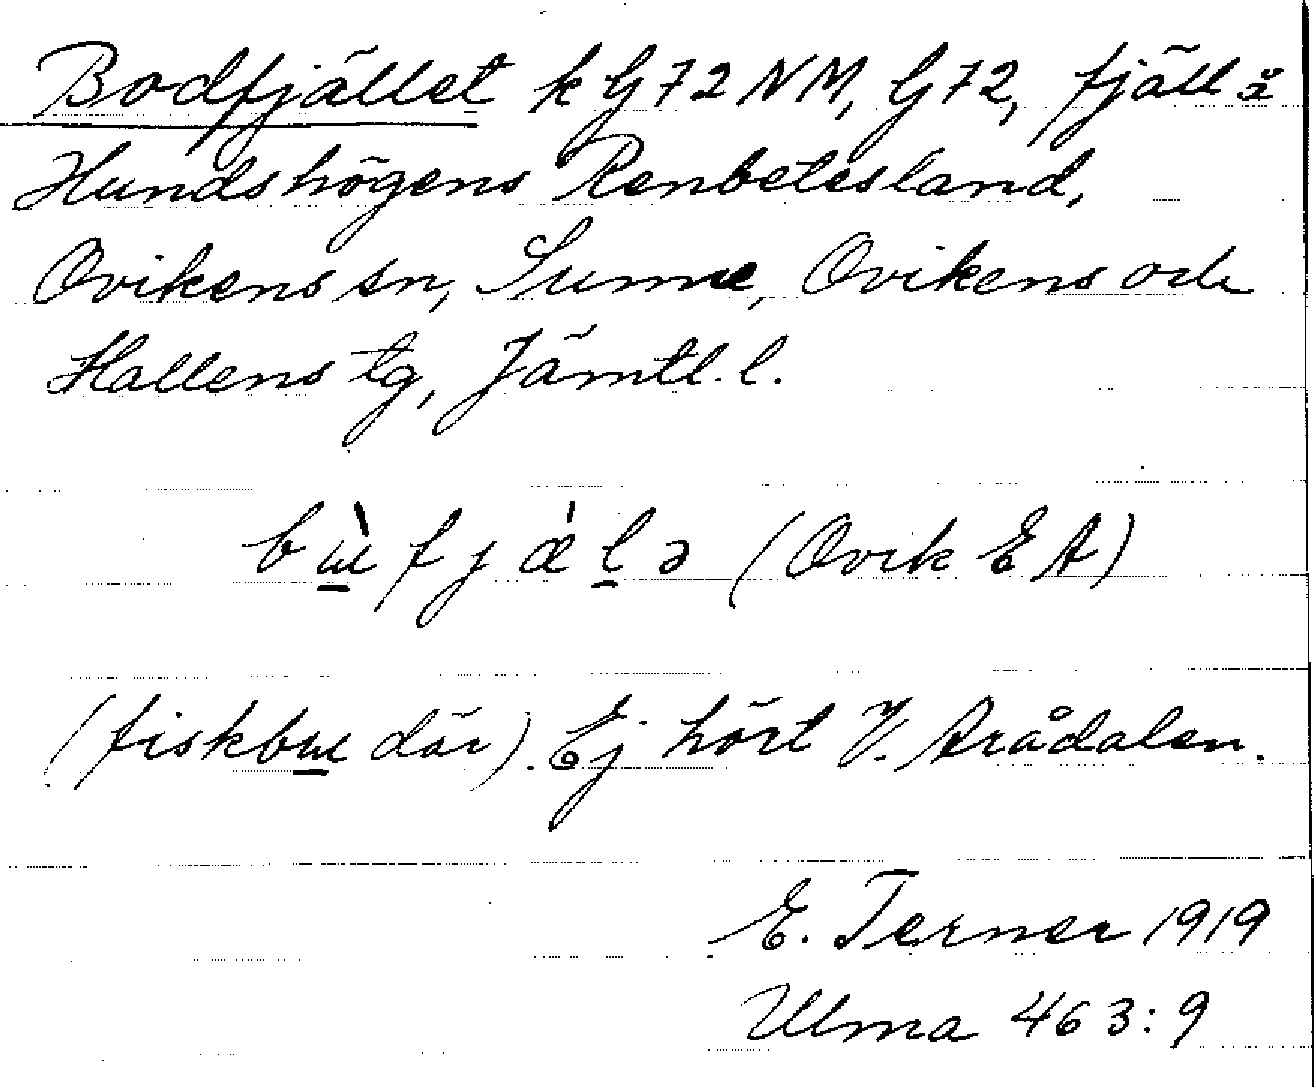 Bodfjället k G72NM, G72, fjäll å
Hundshögens Renbetesland,
Ovikens sn, Sunne, Ovikens och
Hallens tg, Jämtl. l.
(Ovik E A)
(fiskbɯ där). Ej hört V. Arådalen.
E. Terner 1919
Ulma 463:9